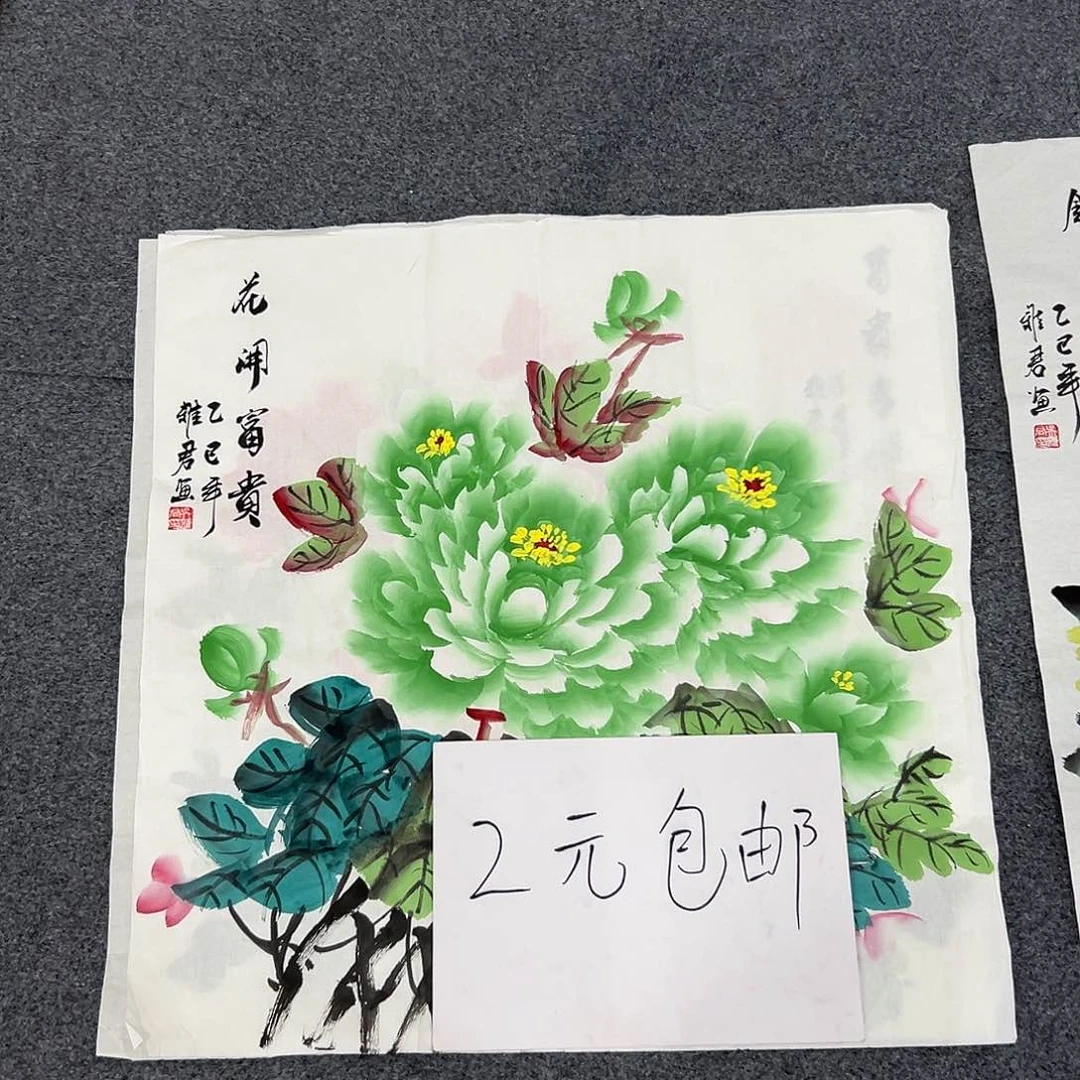 花開富貴
乙巳年
雅君画
2元包邮
乙巳年
雅君画